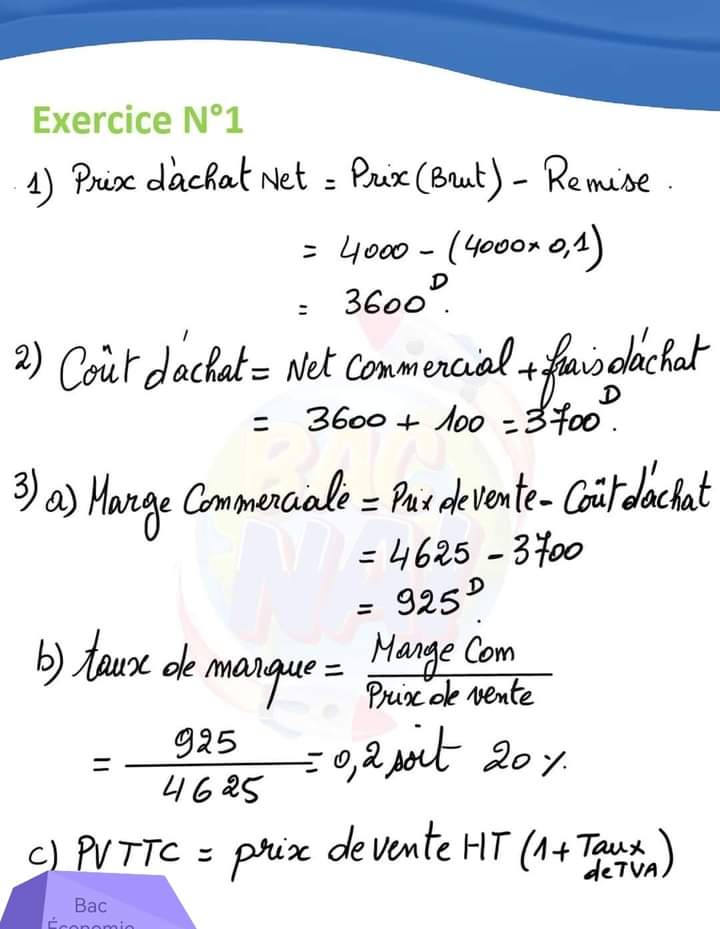 Exercice N°1
1) Prix d'achat Net = Prix (Brut) - Remise.
= 4000 - (4000 × 0,1)
= 3600 D.
2) Coût d'achat = Net Commercial + frais d'achat
= 3600 + 100 = 3700 D.
3) a) Marge Commerciale = Prix de vente - Coût d'achat
= 4625 - 3700
= 925 D.
b) taux de marque = Marge Com / Prix de vente
= 925 / 4625 = 0,2 soit 20 %.
c) PV TTC = prix de vente HT (1 + Taux de TVA)
BAC
NA!
Bac
Économie